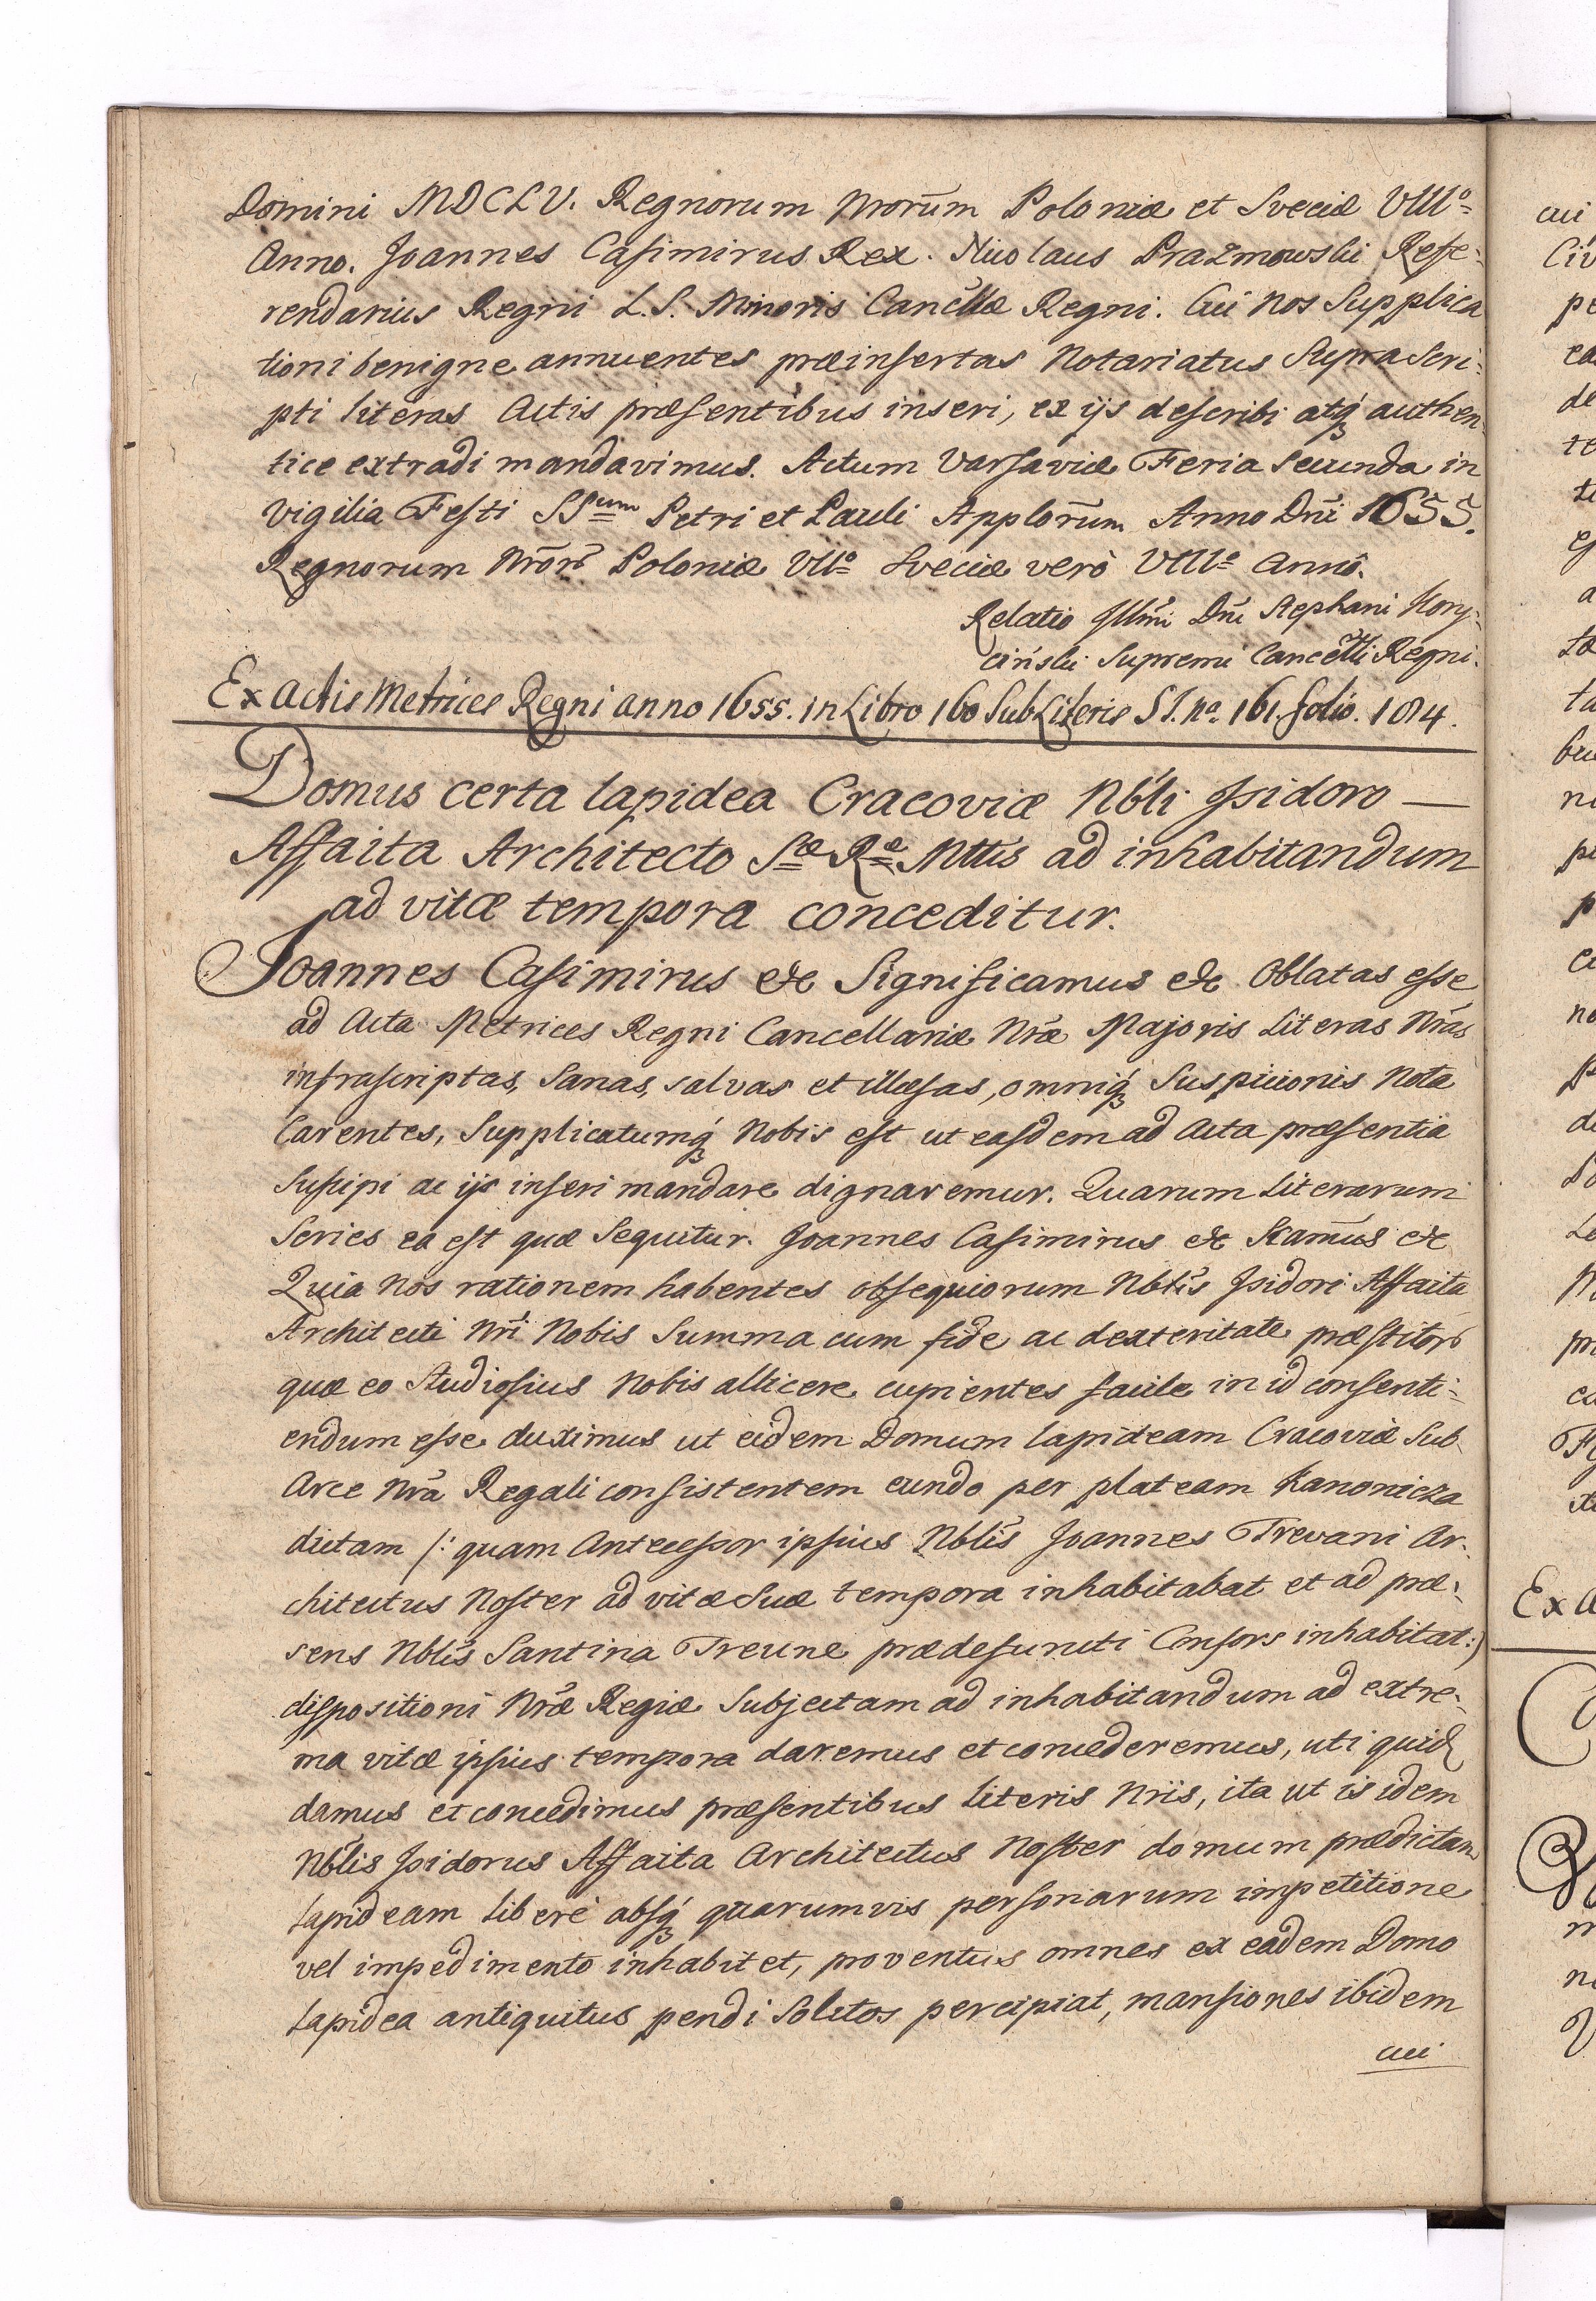 Domini MDCLV. Regnorum Nrorum Poloniæ et Sveciæ VIIIº
Anno. Joannes Casimirus Rex. Nicolaus Prażmowski Refe-
rendarius Regni L.S. Minoris Cancellæ Regni. Cui Nos Supplica
tioni benigne annuentes præinsertas Notariatus Suprascri-
pti literas Actis præsentibus inseri, ex ijs describi atq́ authen-
tice extradi mandavimus. Actum Varsaviæ Feria secunda in
Vigilia Festi SSum Petri et Pauli Applorum Anno Dni 1655.
Regnorum Nror Poloniæ VIIº Sveciæ verò VIIIº Annô.
Relatio Illmi Dni Stephani Kory-
cińslii Supremi Cancelli Regni.
Ex Actis Metrices Regni anno 1655. in Libro 160 Sub Literis S I. no. 161. folio. 184.
Domus certa lapidea Cracoviæ Nbli Isidoro —
Affaita Architecto Sæ Ræ Mttis ad inhabitandum
ad vitæ tempora conceditur.
Joannes Casimirus &c Significamus &c Oblatas esse
ad Acta Metrices Regni Cancellariæ Nræ Majoris Literas Nras
infrascriptas, Sanas, salvas et illæsas, omniq́ Suspicionis Nota
Carentes, Supplicatumq́ Nobis est ut easdem ad Acta præsentia
Suscipi ac ijs inseri mandare dignaremur. Quarum Literarum
Series ea est quæ Sequitur. Joannes Casimirus &c Scamus &c
Quia Nos rationem habentes obsequiorum Nblis Isidori Affaita
Architecti Nri Nobis Summa cum fide ac dexteritate præstitor
quæ eo Studiosius Nobis allicere cupientes facile in id consenti-
endum esse duximus ut eidem Domum lapideam Cracoviæ Sub
Arce Nra Regali consistentem eundo per plateam Kanonicza
dictam /: quam Antecessor ipsius Nblis Joannes Trevani Ar-
chitectus Noster ad vitæ Suæ tempora inhabitabat et ad præ-
sens Nblis Santina Treune prædefuncti Consors inhabitat :)
dispositioni Nræ Regiæ Subjectam ad inhabitandum ad extre-
ma vitæ ipsius tempora daremus et concederemus, uti quid
damus et concedimus præsentibus Literis Nriis, ita ut is idem
Nblis Isidorus Affaita Architectus Noster domum prædictam
Lapideam Liberè absq́ quarumvis personarum impetitione
vel impedimento inhabitet, proventus omnes ex eadem Domo
Lapidea antiquitus pendi Solitos percipiat, mansiones ibidem
cui